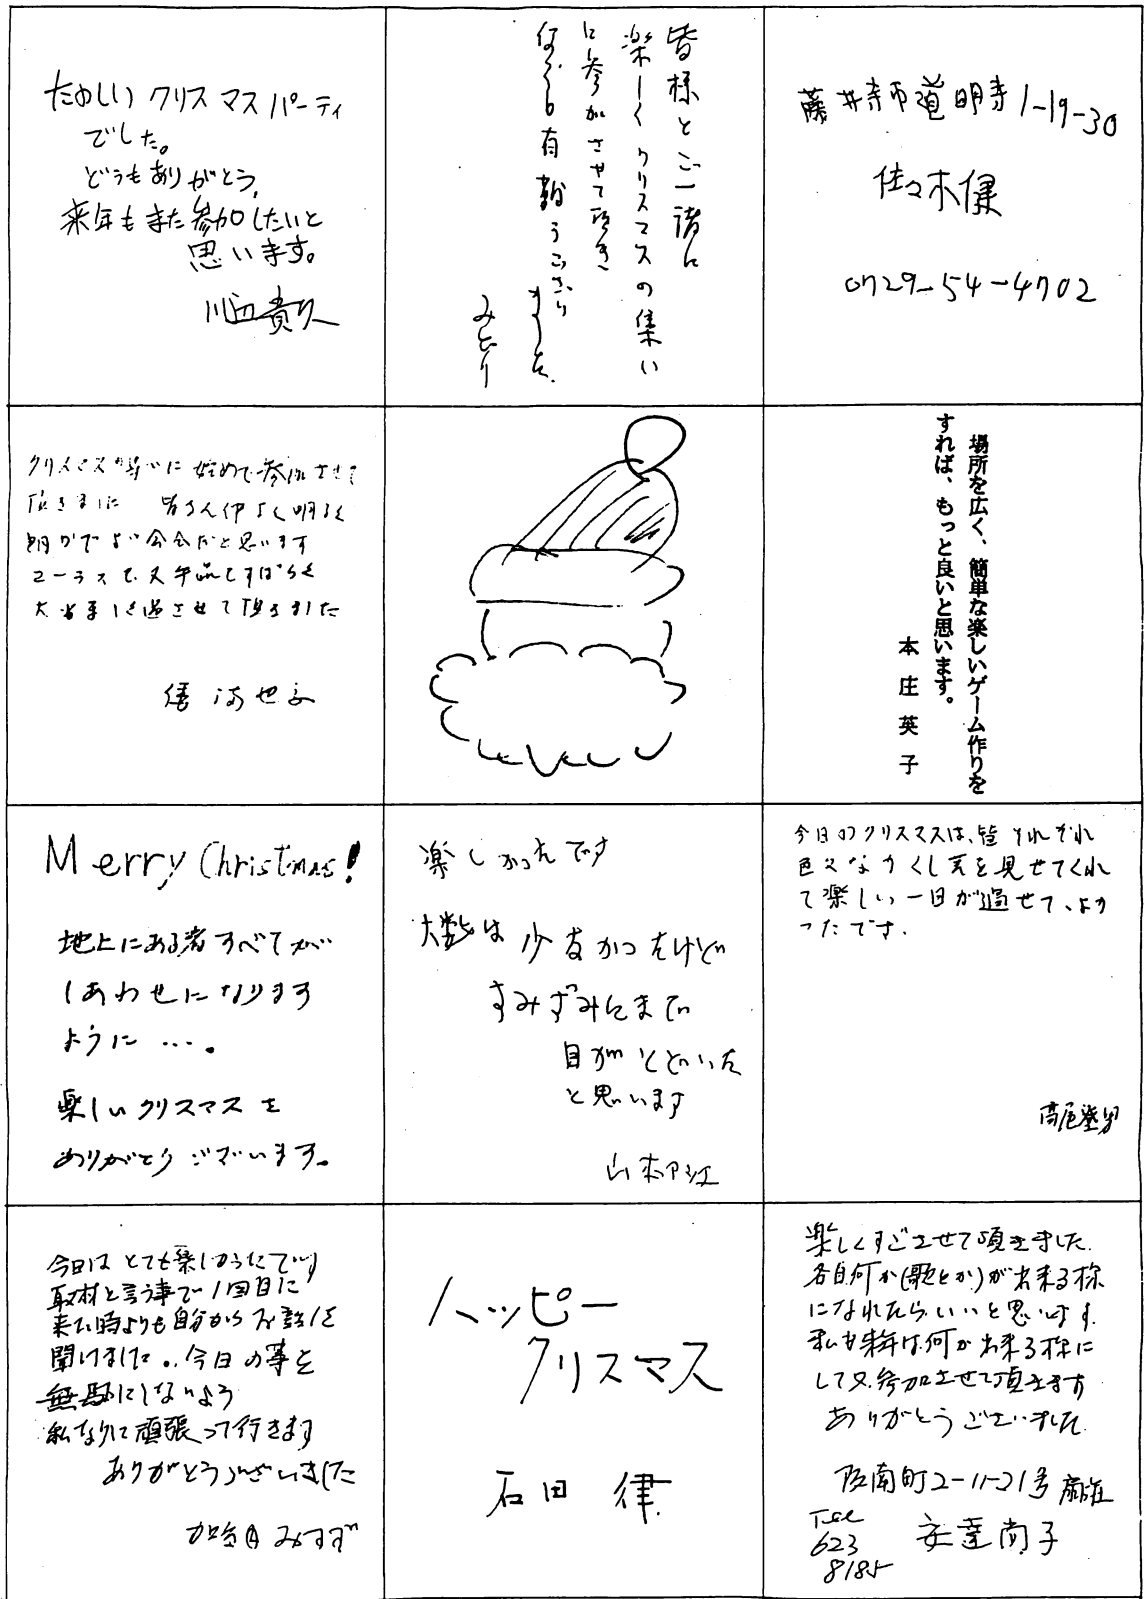 たのしい クリスマスパーティ
でした。
どうもありがとう、
来年もまた参加したいと
思います。
皆様とご一諸に
楽しくクリスマスの集い
に参加させて頂き
有難うござり
ました。
みどり
藤井寺市道明寺1-19-30
佐々木健
0729-54-4702
クリスマスの集いに始めて参加させて
頂きました 皆さん仲よく明るく
思います
コーラスで、又手品てすばらしく
過させて頂きました
場所を広く、簡単な楽しいゲーム作りを
すれば、もっと良いと思います。
本庄英子
Merry Christmas!
地上にある者すべてが
しあわせになります
ように…。
楽しいクリスマスを
ありがとうございます。
楽しかったです
人数は少なかったけど
すみずみにまで
目がとどいた
と思います
山本
今日のクリスマスは、皆それぞれ
色々なかくし芸を見せてくれ
て楽しい一日が過せて、よか
ったです.
高尾
今日は とても楽しかったです
取材と言う事で1回目に
来た時よりも自分からお話を
聞けました。今日の事を
無駄にしないよう
私なりに頑張って行きます
ありがとうございました
みすず
ハッピー
クリスマス
石田 律
楽しくすごさせて頂きました.
各自何か(歌とか)が出来る様
になれたらいいと思います.
私も来年は何か出来る様に
して又参加させて頂きます
ありがとうございました.
阪南町2-11-21号
Tel
623
8185
安達尚子